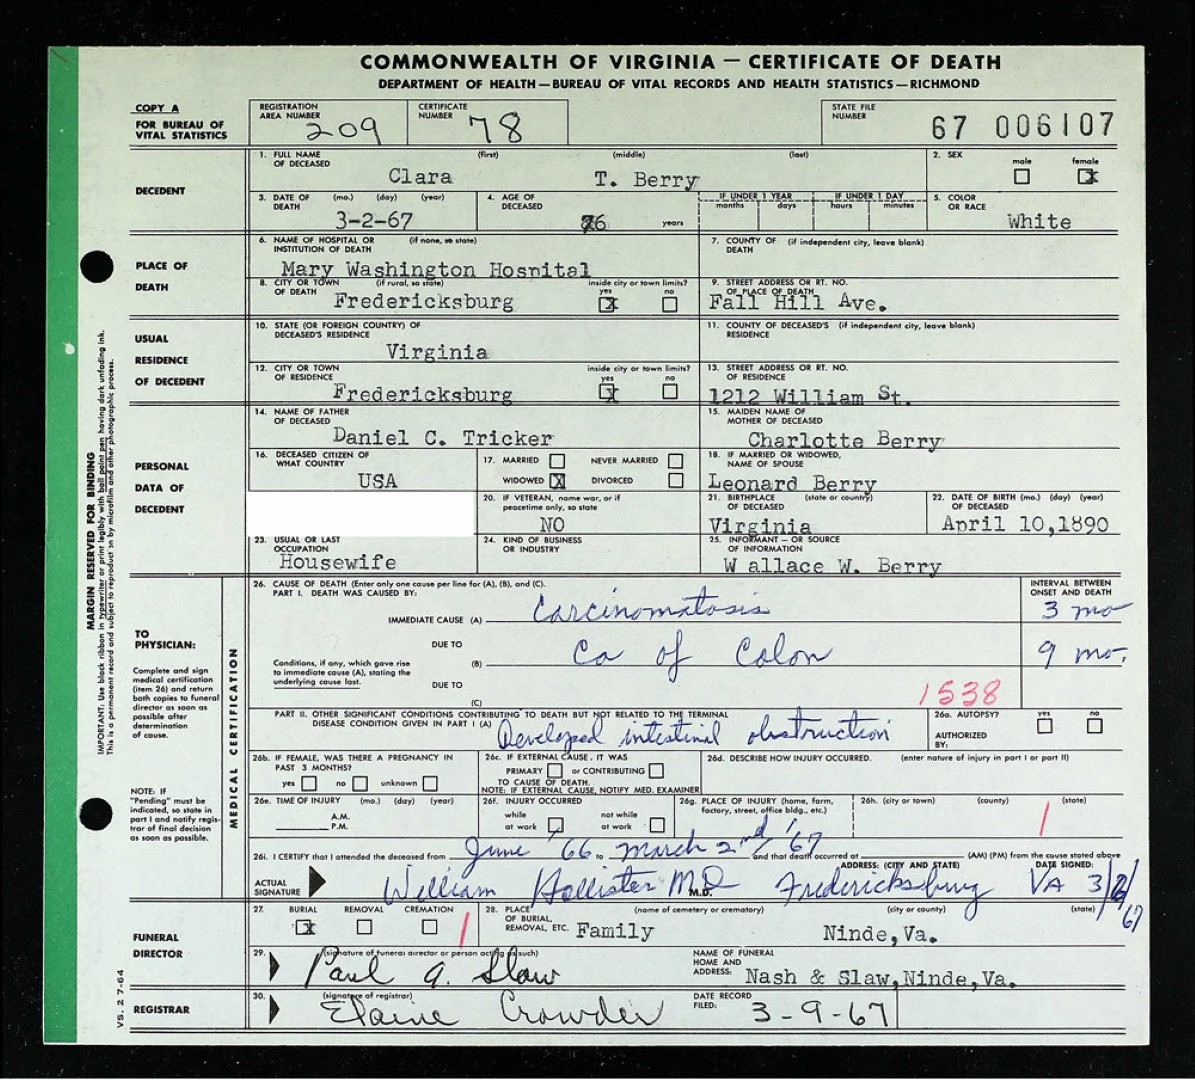 COMMONWEALTH OF VIRGINIA — CERTIFICATE OF DEATH
DEPARTMENT OF HEALTH — BUREAU OF VITAL RECORDS AND HEALTH STATISTICS — RICHMOND
COPY A
FOR BUREAU OF VITAL STATISTICS
REGISTRATION AREA NUMBER 209
CERTIFICATE NUMBER 78
STATE FILE NUMBER 67 006107
DECEDENT
1. FULL NAME OF DECEASED (first) (middle) (last)
Clara T. Berry
2. SEX male female X
3. DATE OF DEATH (mo.) (day) (year)
3-2-67
4. AGE OF DECEASED 76 years
IF UNDER 1 YEAR months days
IF UNDER 1 DAY hours minutes
5. COLOR OR RACE White
PLACE OF DEATH
6. NAME OF HOSPITAL OR INSTITUTION OF DEATH (if none, so state)
Mary Washington Hospital
7. COUNTY OF DEATH (if independent city, leave blank)
8. CITY OR TOWN OF DEATH (if rural, so state) inside city or town limits? yes X no
Fredericksburg
9. STREET ADDRESS OR RT. NO. OF PLACE OF DEATH
Fall Hill Ave.
USUAL RESIDENCE OF DECEDENT
10. STATE (OR FOREIGN COUNTRY) OF DECEASED'S RESIDENCE
Virginia
11. COUNTY OF DECEASED'S RESIDENCE (if independent city, leave blank)
12. CITY OR TOWN OF RESIDENCE inside city or town limits? yes X no
Fredericksburg
13. STREET ADDRESS OR RT. NO. OF RESIDENCE
1212 William St.
PERSONAL DATA OF DECEDENT
14. NAME OF FATHER OF DECEASED
Daniel C. Tricker
15. MAIDEN NAME OF MOTHER OF DECEASED
Charlotte Berry
16. DECEASED CITIZEN OF WHAT COUNTRY
USA
17. MARRIED NEVER MARRIED
WIDOWED X DIVORCED
18. IF MARRIED OR WIDOWED, NAME OF SPOUSE
Leonard Berry
20. IF VETERAN, name war, or if peacetime only, so state
NO
21. BIRTHPLACE OF DECEASED (state or country)
Virginia
22. DATE OF BIRTH OF DECEASED (mo.) (day) (year)
April 10,1890
23. USUAL OR LAST OCCUPATION
Housewife
24. KIND OF BUSINESS OR INDUSTRY
25. INFORMANT — OR SOURCE OF INFORMATION
W allace W. Berry
MARGIN RESERVED FOR BINDING
IMPORTANT: Use black ribbon in typewriter or print legibly with ball point pen having dark unfading ink.
This is permanent record and subject to reproduction by microfilm and other photographic process.
TO PHYSICIAN:
Complete and sign medical certification (item 26) and return both copies to funeral director as soon as possible after determination of cause.
NOTE: IF "Pending" must be indicated, so state in part I and notify registrar of final decision as soon as possible.
MEDICAL CERTIFICATION
26. CAUSE OF DEATH (Enter only one cause per line for (A), (B), and (C).
PART I. DEATH WAS CAUSED BY:
INTERVAL BETWEEN ONSET AND DEATH
IMMEDIATE CAUSE (A) Carcinomatosis 3 mo
DUE TO
(B) Ca of Colon 9 mo.
Conditions, if any, which gave rise to immediate cause (A), stating the underlying cause last.
DUE TO
(C)
1538
PART II. OTHER SIGNIFICANT CONDITIONS CONTRIBUTING TO DEATH BUT NOT RELATED TO THE TERMINAL DISEASE CONDITION GIVEN IN PART I (A)
Developed intestinal obstruction
26a. AUTOPSY? yes no
AUTHORIZED BY:
26b. IF FEMALE, WAS THERE A PREGNANCY IN PAST 3 MONTHS?
yes no unknown
26c. IF EXTERNAL CAUSE, IT WAS
PRIMARY or CONTRIBUTING
TO CAUSE OF DEATH.
NOTE: IF EXTERNAL CAUSE, NOTIFY MED. EXAMINER
26d. DESCRIBE HOW INJURY OCCURRED. (enter nature of injury in part I or part II)
26e. TIME OF INJURY (mo.) (day) (year)
A.M.
P.M.
26f. INJURY OCCURRED
while at work not while at work
26g. PLACE OF INJURY (home, farm, factory, street, office bldg., etc.)
26h. (city or town) (county) (state)
26i. I CERTIFY that I attended the deceased from June '66 to March 2nd, '67 and that death occurred at (AM) (PM) from the cause stated above
ACTUAL SIGNATURE William Hollister M.D. M.D.
ADDRESS: (CITY AND STATE) Fredericksburg VA
DATE SIGNED: 3/2/67
FUNERAL DIRECTOR
27. BURIAL X REMOVAL CREMATION
28. PLACE OF BURIAL, REMOVAL, ETC. (name of cemetery or crematory) (city or county) (state)
Family Ninde,Va.
29. (signature of funeral director or person acting as such)
Paul A. Slaw
NAME OF FUNERAL HOME AND ADDRESS: Nash & Slaw,Ninde,Va.
REGISTRAR
30. (signature of registrar)
Elaine Crowder
DATE RECORD FILED: 3-9-67
VS. 2 7-64